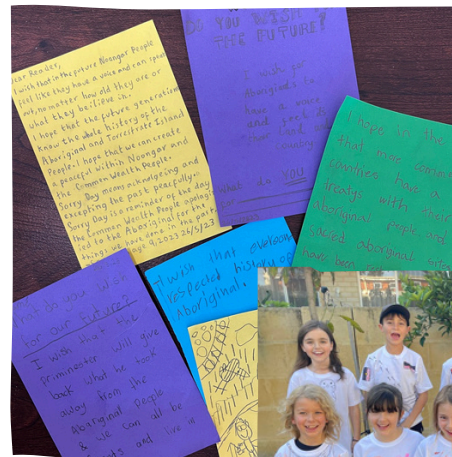 ear Reader,
I wish that in the future Noongar People
feel like they have a voice and can speak
out, no matter how old they are or
what they believe in.
I hope that the future generation
know the whole history of the
Aboriginal and Torrestrate Island
People. I hope that we can create
a peaceful within Noongar and
the Common Wealth People.
Sorry Day means acknowleging and
excepting the past peacefully.
Sorry Day is a reminder of the day
the Common Wealth People apolog
ted to the Aboriginal for the
things we have done in the past.
9, 2023 26/5/23
DO YOU
THE FUTURE?
I wish for
Aboriginals to
have a voice
and
their land
country
What do YOU
for
I hope in the
that more
countries have a
treatys with their
aboriginal people and
sacred aboriginal
have been
I wish that everyone
respected history of
Aboriginal.
hat do you wish
for our future?
I wish that the
priminester will give
back what he took
away from the
Aboriginal People
& we can all be
and live in